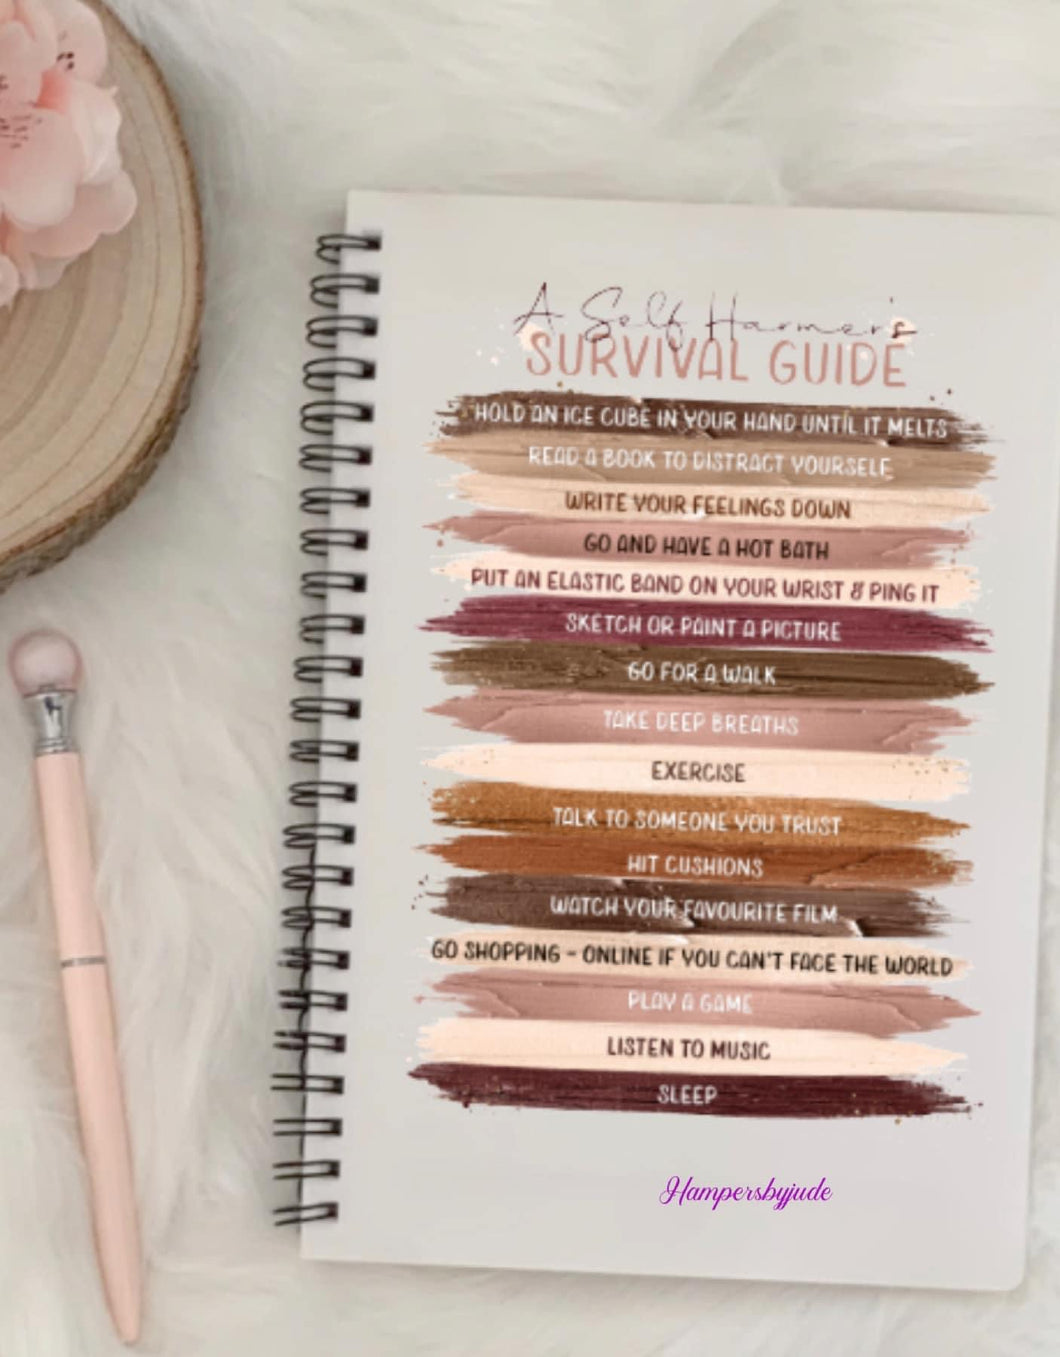 A Self Harmer's
SURVIVAL GUIDE
HOLD AN ICE CUBE IN YOUR HAND UNTIL IT MELTS
READ A BOOK TO DISTRACT YOURSELF
WRITE YOUR FEELINGS DOWN
GO AND HAVE A HOT BATH
PUT AN ELASTIC BAND ON YOUR WRIST & PING IT
SKETCH OR PAINT A PICTURE
GO FOR A WALK
TAKE DEEP BREATHS
EXERCISE
TALK TO SOMEONE YOU TRUST
HIT CUSHIONS
WATCH YOUR FAVOURITE FILM
GO SHOPPING - ONLINE IF YOU CAN'T FACE THE WORLD
PLAY A GAME
LISTEN TO MUSIC
SLEEP
Hampersbyjude